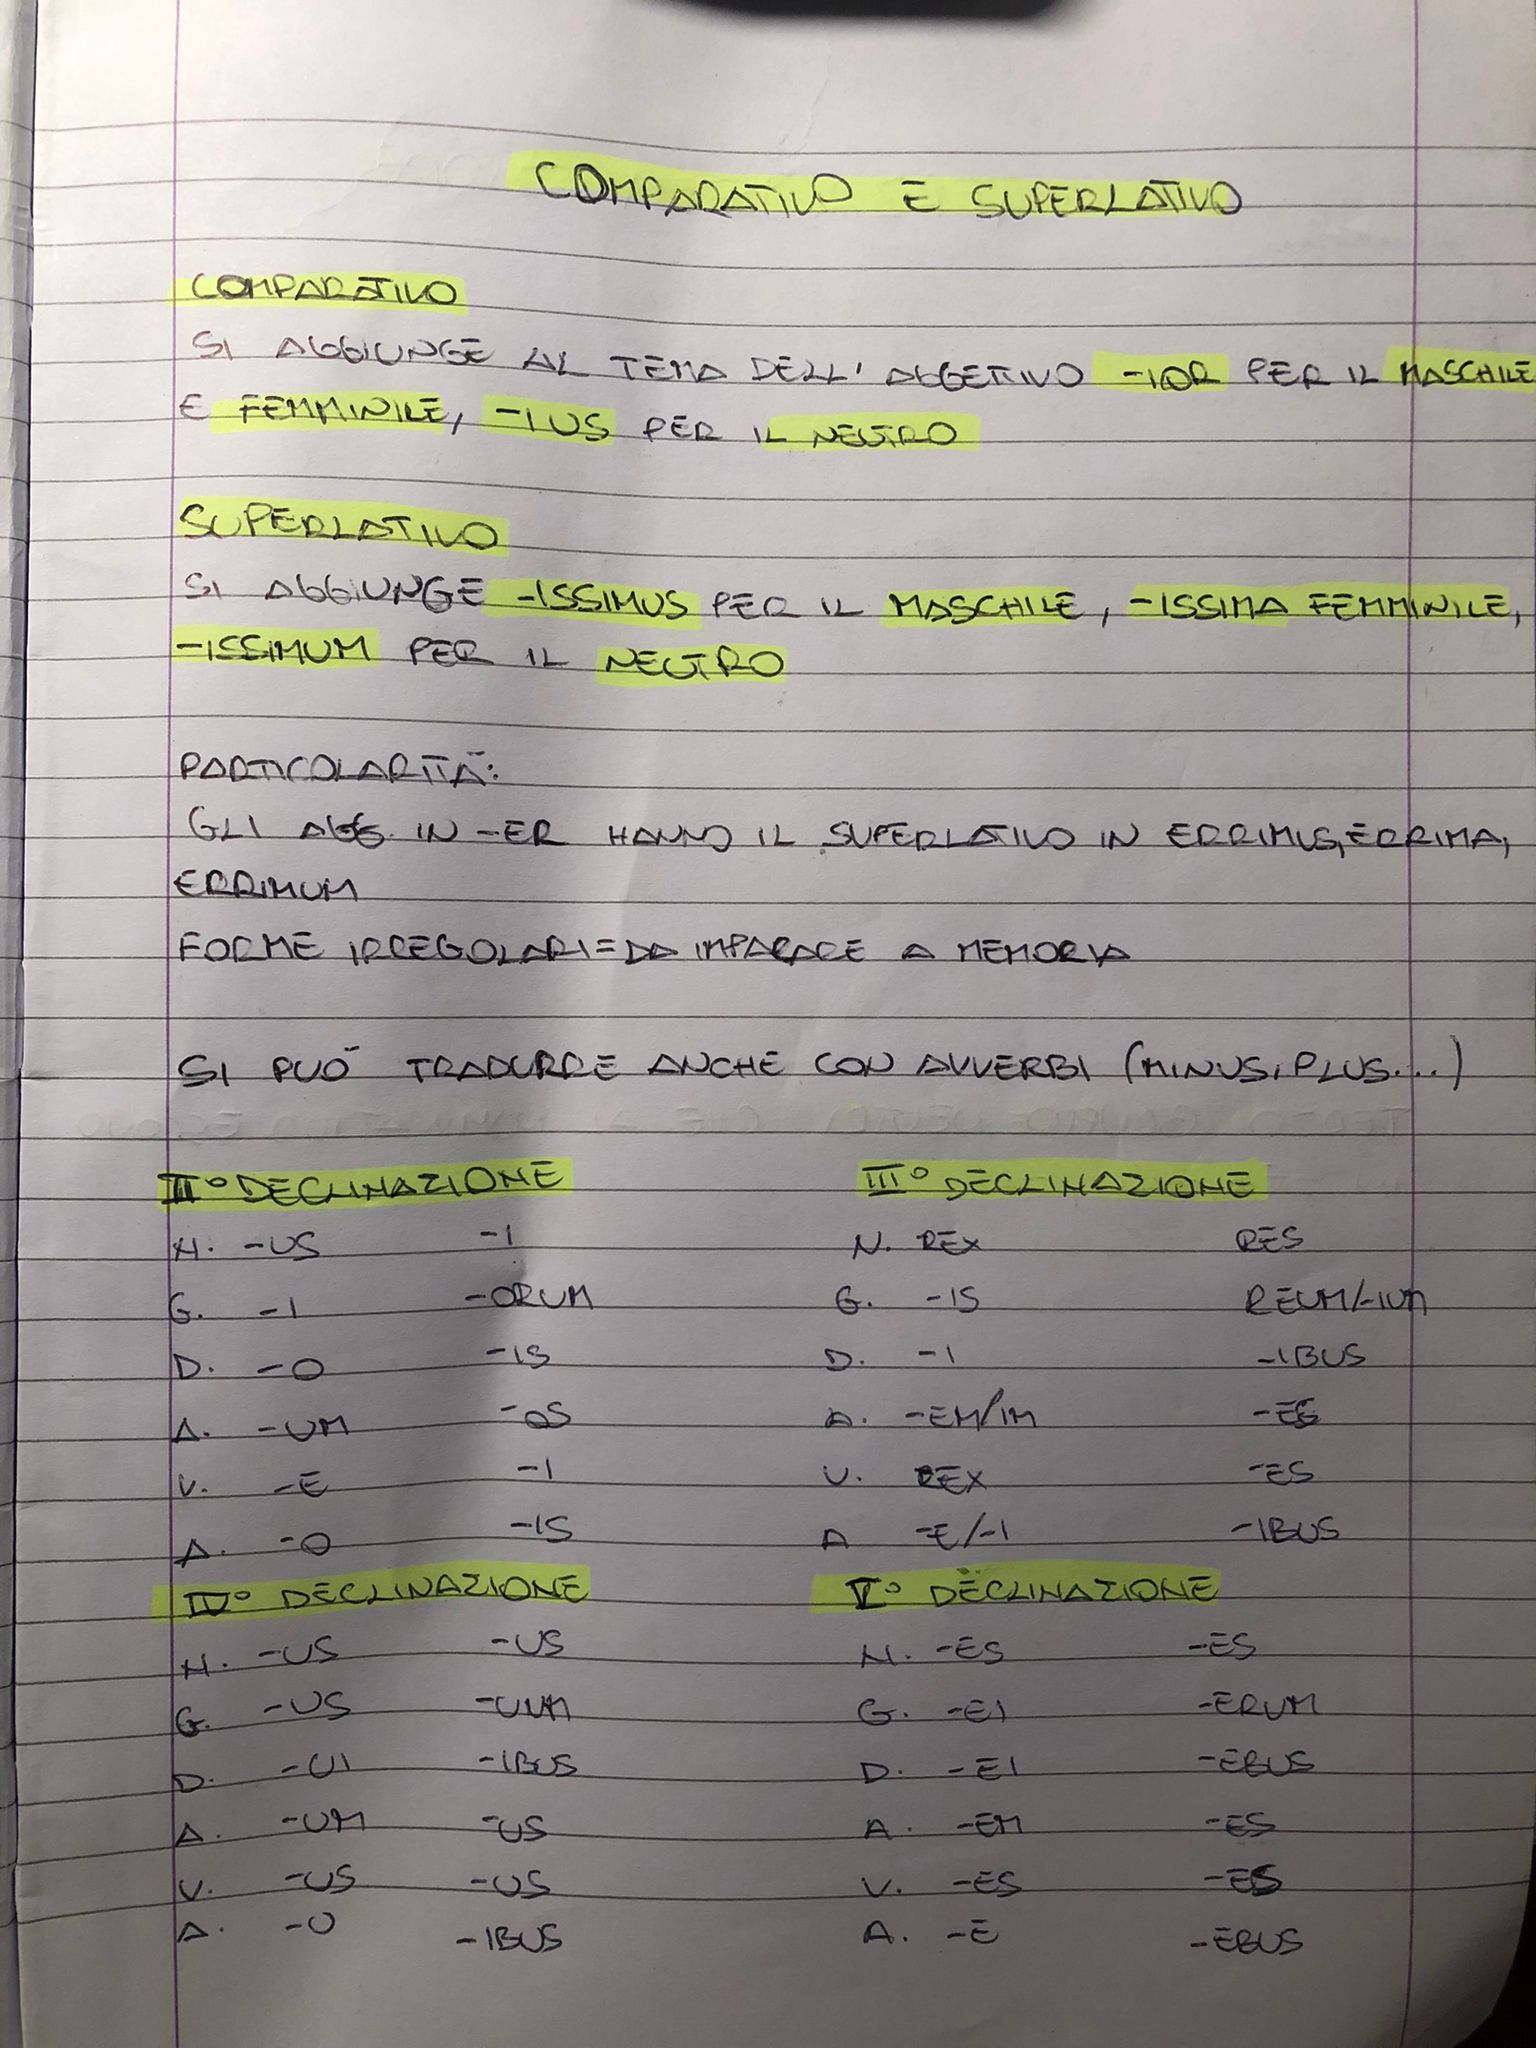 COMPARATIVO E SUPERLATIVO
COMPARATIVO
SI AGGIUNGE AL TEMA DELL'AGGETTIVO -IOR PER IL MASCHILE
E FEMMINILE, -IUS PER IL NEUTRO
SUPERLATIVO
SI AGGIUNGE -ISSIMUS PER IL MASCHILE, -ISSIMA FEMMINILE,
-ISSIMUM PER IL NEUTRO
PARTICOLARITÀ:
GLI AGG. IN -ER HANNO IL SUPERLATIVO IN ERRIMUS, ERRIMA,
ERRIMUM
FORME IRREGOLARI = DA IMPARARE A MEMORIA
SI PUÒ TRADURRE ANCHE CON AVVERBI (MINUS, PLUS...)
II° DECLINAZIONE
N. -US -I
G. -I -ORUM
D. -O -IS
A. -UM -OS
V. -E -I
A. -O -IS
III° DECLINAZIONE
N. REX RES
G. -IS REUM/-IUM
D. -I -IBUS
A. -EM/IM -ES
V. REX -ES
A -E/-I -IBUS
IV° DECLINAZIONE
N. -US -US
G. -US -UUM
D. -UI -IBUS
A. -UM -US
V. -US -US
A. -U -IBUS
V° DECLINAZIONE
N. -ES -ES
G. -EI -ERUM
D. -EI -EBUS
A. -EM -ES
V. -ES -ES
A. -E -EBUS